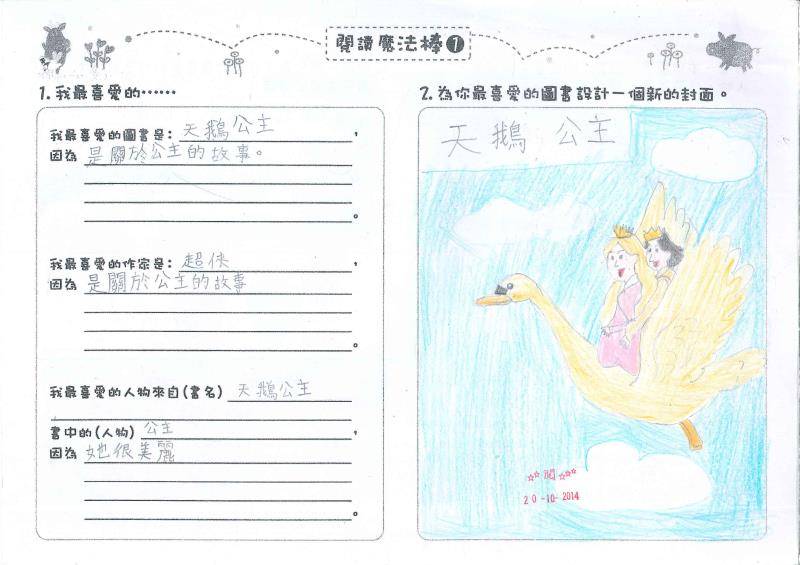 閱讀魔法棒1
1.我最喜愛的……
我最喜愛的圖書是:天鵝公主,
因為是關於公主的故事。
。
我最喜愛的作家是:超俠,
因為是關於公主的故事
。
我最喜愛的人物來自(書名)天鵝公主
書中的(人物)公主,
因為她很美麗
。
2.為你最喜愛的圖書設計一個新的封面。
天鵝 公主
☆☆閱☆☆☆
20-10-2014